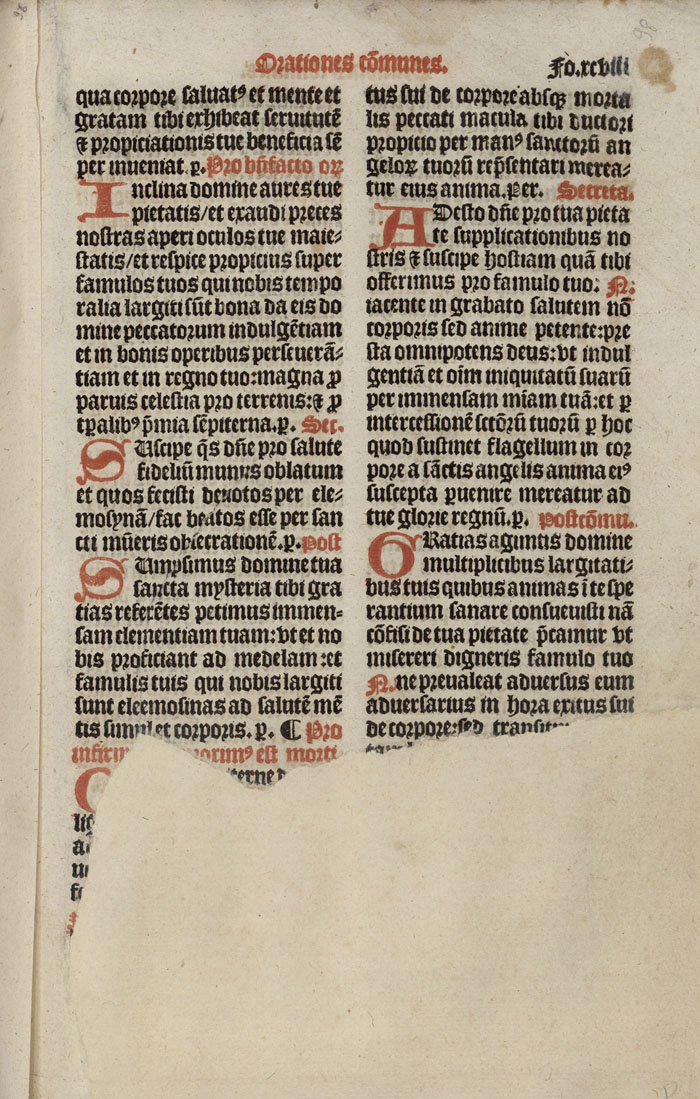 Orationes cōmunes.
Fo.xcviii
98
98
qua corpore saluatꝰ et mente et
gratam tibi exhibeat seruitutē
⁊ propiciationis tue beneficia sē
per inueniat.p. Pro bn̄facto oꝝ
Inclina domine aures tue
pietatis/et exaudi preces
nostras aperi oculos tue maie⸗
statis/et respice propicius super
famulos tuos qui nobis tempo
ralia largiti sūt bona da eis do
mine peccatorum indulgētiam
et in bonis operibus perseuerā⸗
tiam et in regno tuo:magna ꝓ
paruis celestia pro terrenis:⁊ ꝓ
tꝑalibꝰ p̄mia sēpiterna.p. Sec.
SUscipe q̄s dn̄e pro salute
fideliū munus oblatum
et quos fecisti deuotos per ele⸗
mosynā/fac beatos esse per san
cti mūeris obsecrationē.p. Post
SUmpsimus domine tua
sancta mysteria tibi gra
tias referētes petimus immen⸗
sam clementiam tuam:vt et no
bis proficiant ad medelam:et
famulis tuis qui nobis largiti
sunt eleemosinas ad salutē mē
tis simul et corporis.p. ¶ Pro
infirm orumꝰ est morti
terne
li
a
n
f
tus sui de corpore absqꝫ morta
lis peccati macula tibi ductori
propicio per manꝰ sanctorū an
geloꝝ tuorū rep̄sentari merea⸗
tur eius anima.Per. Secreta.
ADesto dn̄e pro tua pieta
te supplicationibus no
stris ⁊ suscipe hostiam quā tibi
offerimus pro famulo tuo: N:
iacente in grabato salutem nō
corporis sed anime petente:pre
sta omnipotens deus:vt indul
gentiā et oīm iniquitatū suarū
per immensam mīam tuā:et ꝑ
intercessionē sctōrū tuorū ꝑ hoc
quod sustinet flagellum in cor
pore a sāctis angelis anima eiꝰ
suscepta ꝑuenire mereatur ad
tue glorie regnū.p. Postcōmu.
GRatias agimus domine
multiplicibus largitati⸗
bus tuis quibus animas ī te spe
rantium sanare consueuisti nā
cōfisi de tua pietate p̄camur vt
misereri digneris famulo tuo
N. ne preualeat aduersus eum
aduersarius in hora exitus sui
de corpore:sed transitum